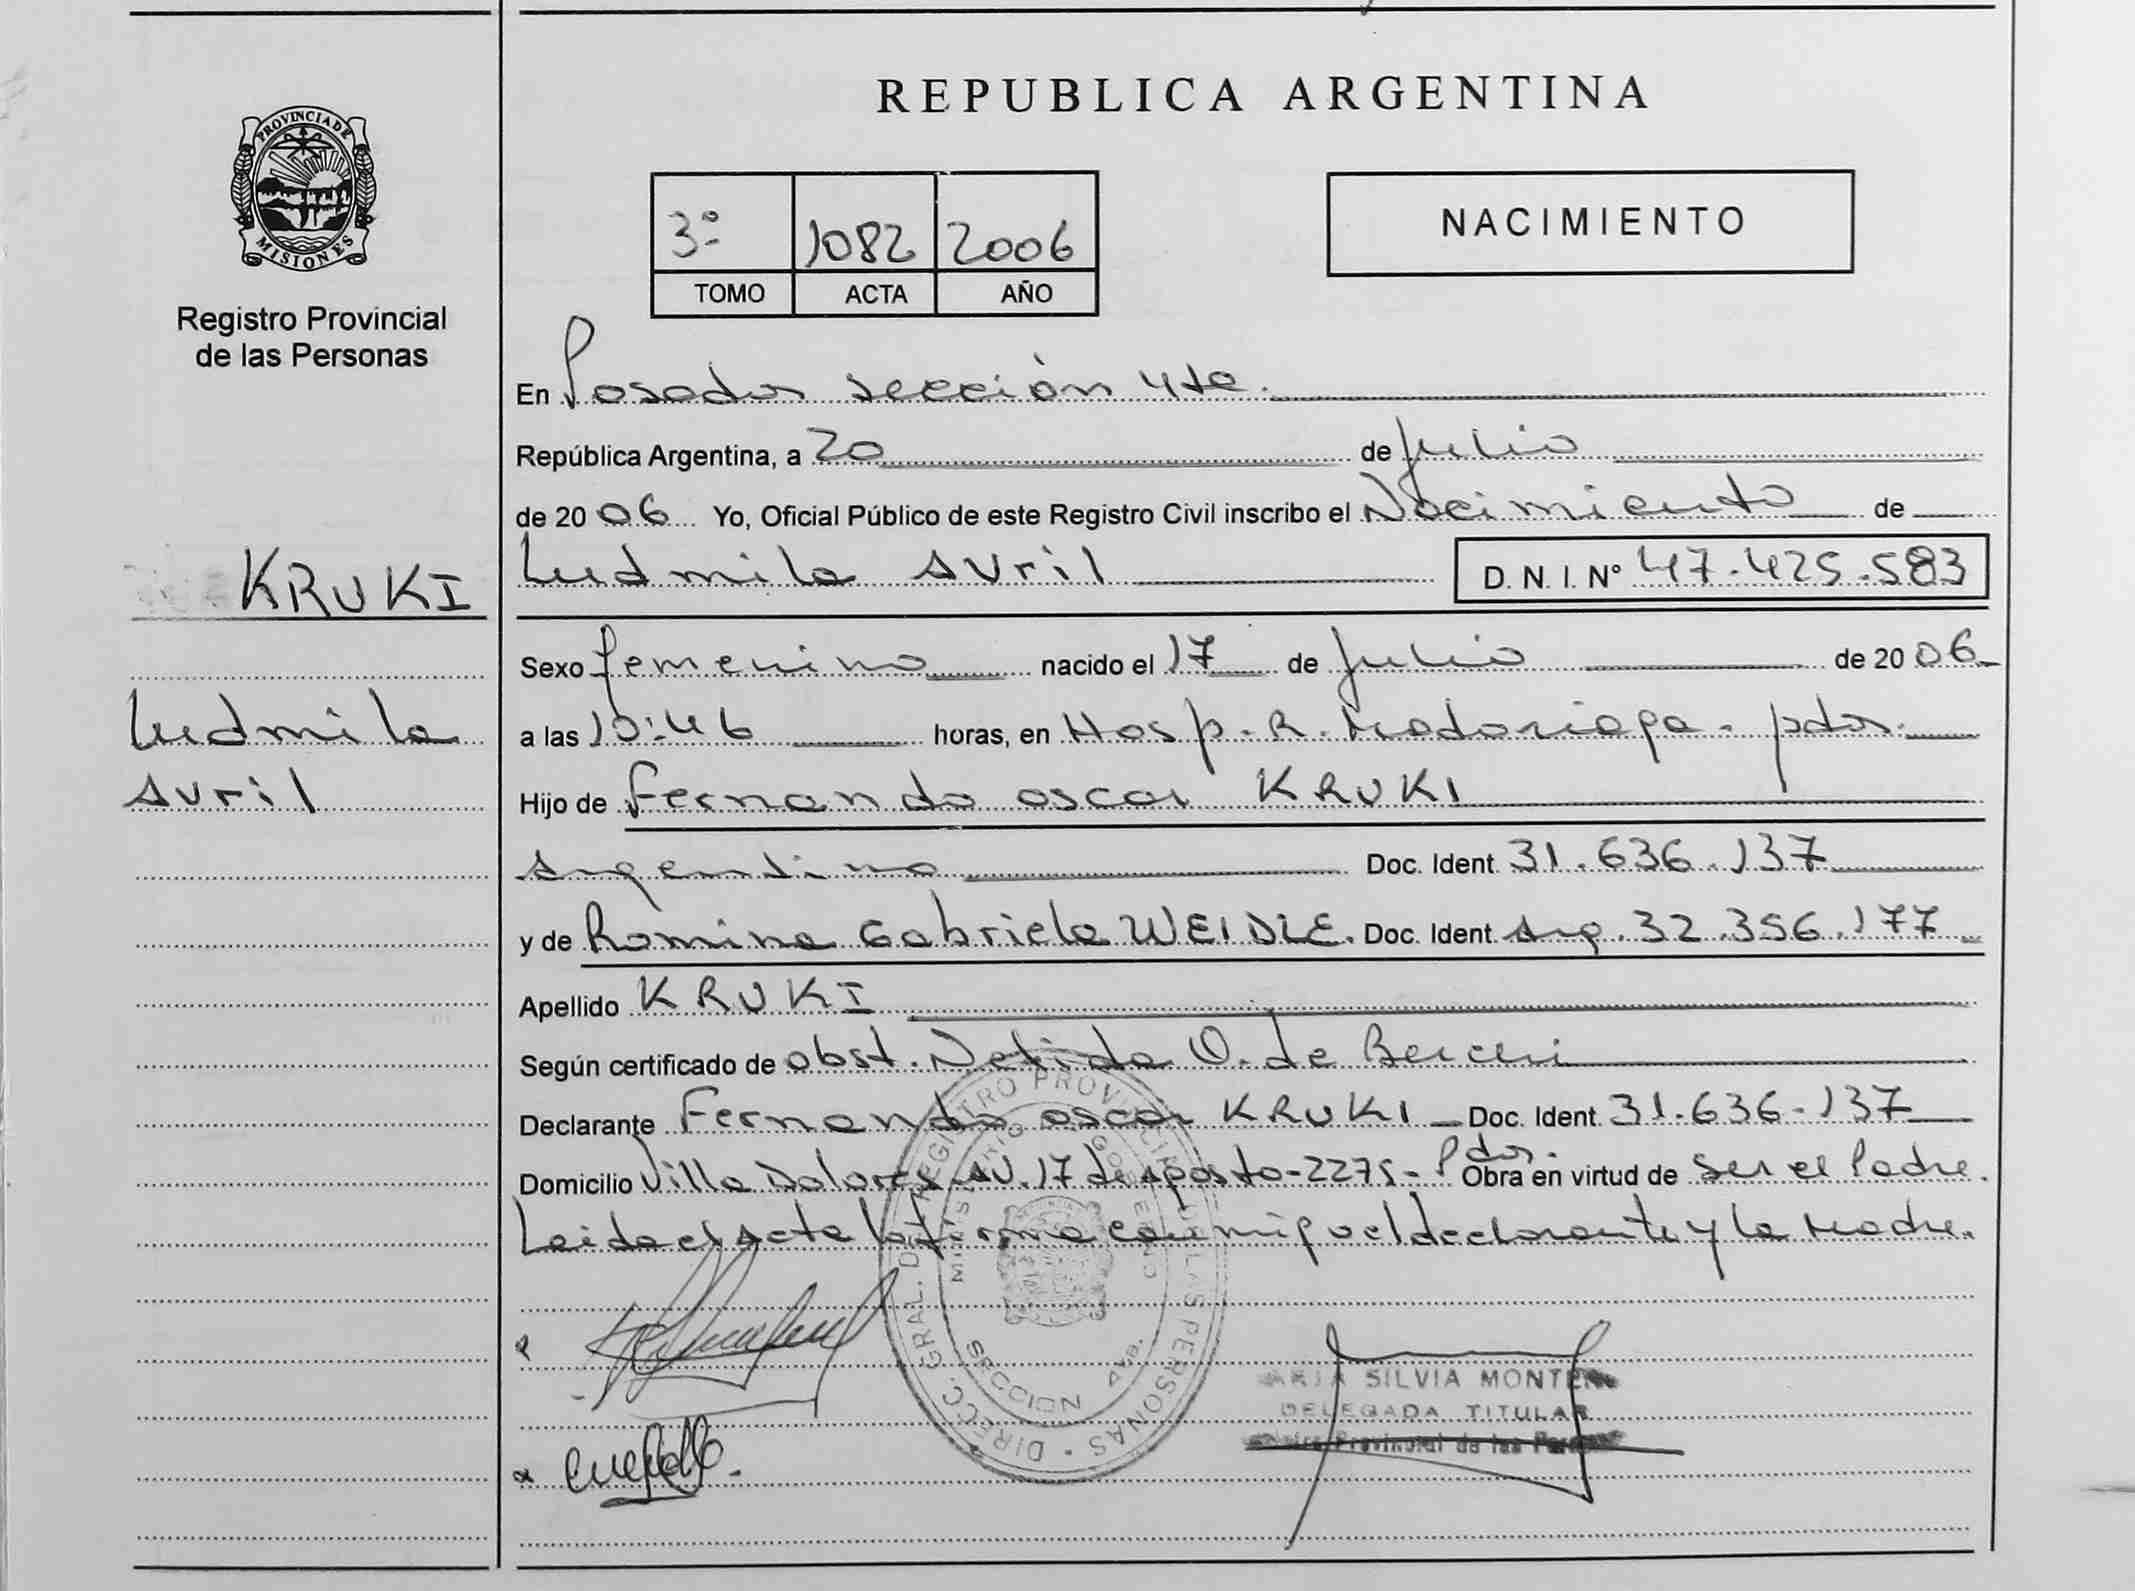 REPUBLICA ARGENTINA
PROVINCIA DE
MISIONES
Registro Provincial
de las Personas
3º 1082 2006
TOMO ACTA AÑO
NACIMIENTO
En Posadas sección 4ta.
República Argentina, a 20 de Julio
de 2006 Yo, Oficial Público de este Registro Civil inscribo el Nacimiento de
KRUKI
Ludmila Avril
Ludmila Avril D. N. I. Nº 47.425.583
Sexo femenino nacido el 17 de Julio de 2006
a las 10:46 horas, en Hosp. R. Madariaga - pdas.
Hijo de Fernando Oscar KRUKI
Argentino Doc. Ident. 31.636.137
y de Romina Gabriela WEIDLE. Doc. Ident. Arg. 32.356.177
Apellido KRUKI
Según certificado de obst. Nelida O. de
Declarante Fernando Oscar KRUKI Doc. Ident. 31.636.137
Domicilio Villa Dolores Av. 17 de Agosto-2275- Pdas. Obra en virtud de ser el Padre.
Leida el acta la firma con migo el declarante y la Madre.
DIRECC. GRAL. DEL REGISTRO PROVINCIAL DE LAS PERSONAS
MINISTERIO DE GOBIERNO
SECCION 4ta.
SILVIA
DELEGADA TITULAR
Provincial de las